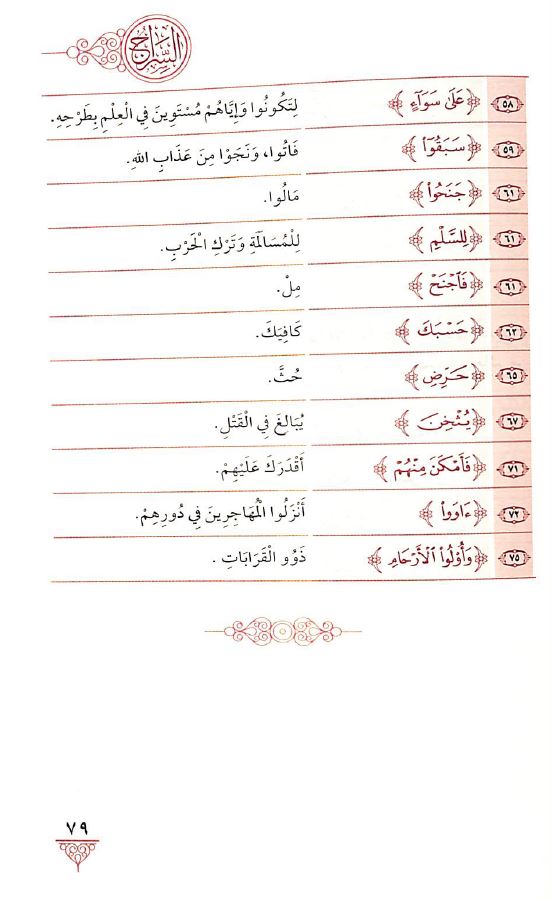 السِّرَاجُ
٥٨ ﴿عَلَىٰ سَوَآءٍ﴾ لِتَكُونُوا وَإِيَّاهُمْ مُسْتَوِينَ فِي الْعِلْمِ بِطَرْحِهِ.
٥٩ ﴿سَبَقُوٓاْ﴾ فَاتُوا، وَنَجَوْا مِنَ عَذَابِ اللهِ.
٦١ ﴿جَنَحُواْ﴾ مَالُوا.
٦١ ﴿لِلسَّلْمِ﴾ لِلْمُسَالَمَةِ وَتَرْكِ الْحَرْبِ.
٦١ ﴿فَٱجْنَحْ﴾ مِلْ.
٦٢ ﴿حَسْبَكَ﴾ كَافِيَكَ.
٦٥ ﴿حَرِّضِ﴾ حُثَّ.
٦٧ ﴿يُثْخِنَ﴾ يُبَالِغَ فِي الْقَتْلِ.
٧١ ﴿فَأَمْكَنَ مِنْهُمْ﴾ أَقْدَرَكَ عَلَيْهِمْ.
٧٢ ﴿ءَاوَواْ﴾ أَنْزَلُوا الْمُهَاجِرِينَ فِي دُورِهِمْ.
٧٥ ﴿وَأُوْلُواْ ٱلْأَرْحَامِ﴾ ذَوُو الْقَرَابَاتِ .
٧٩